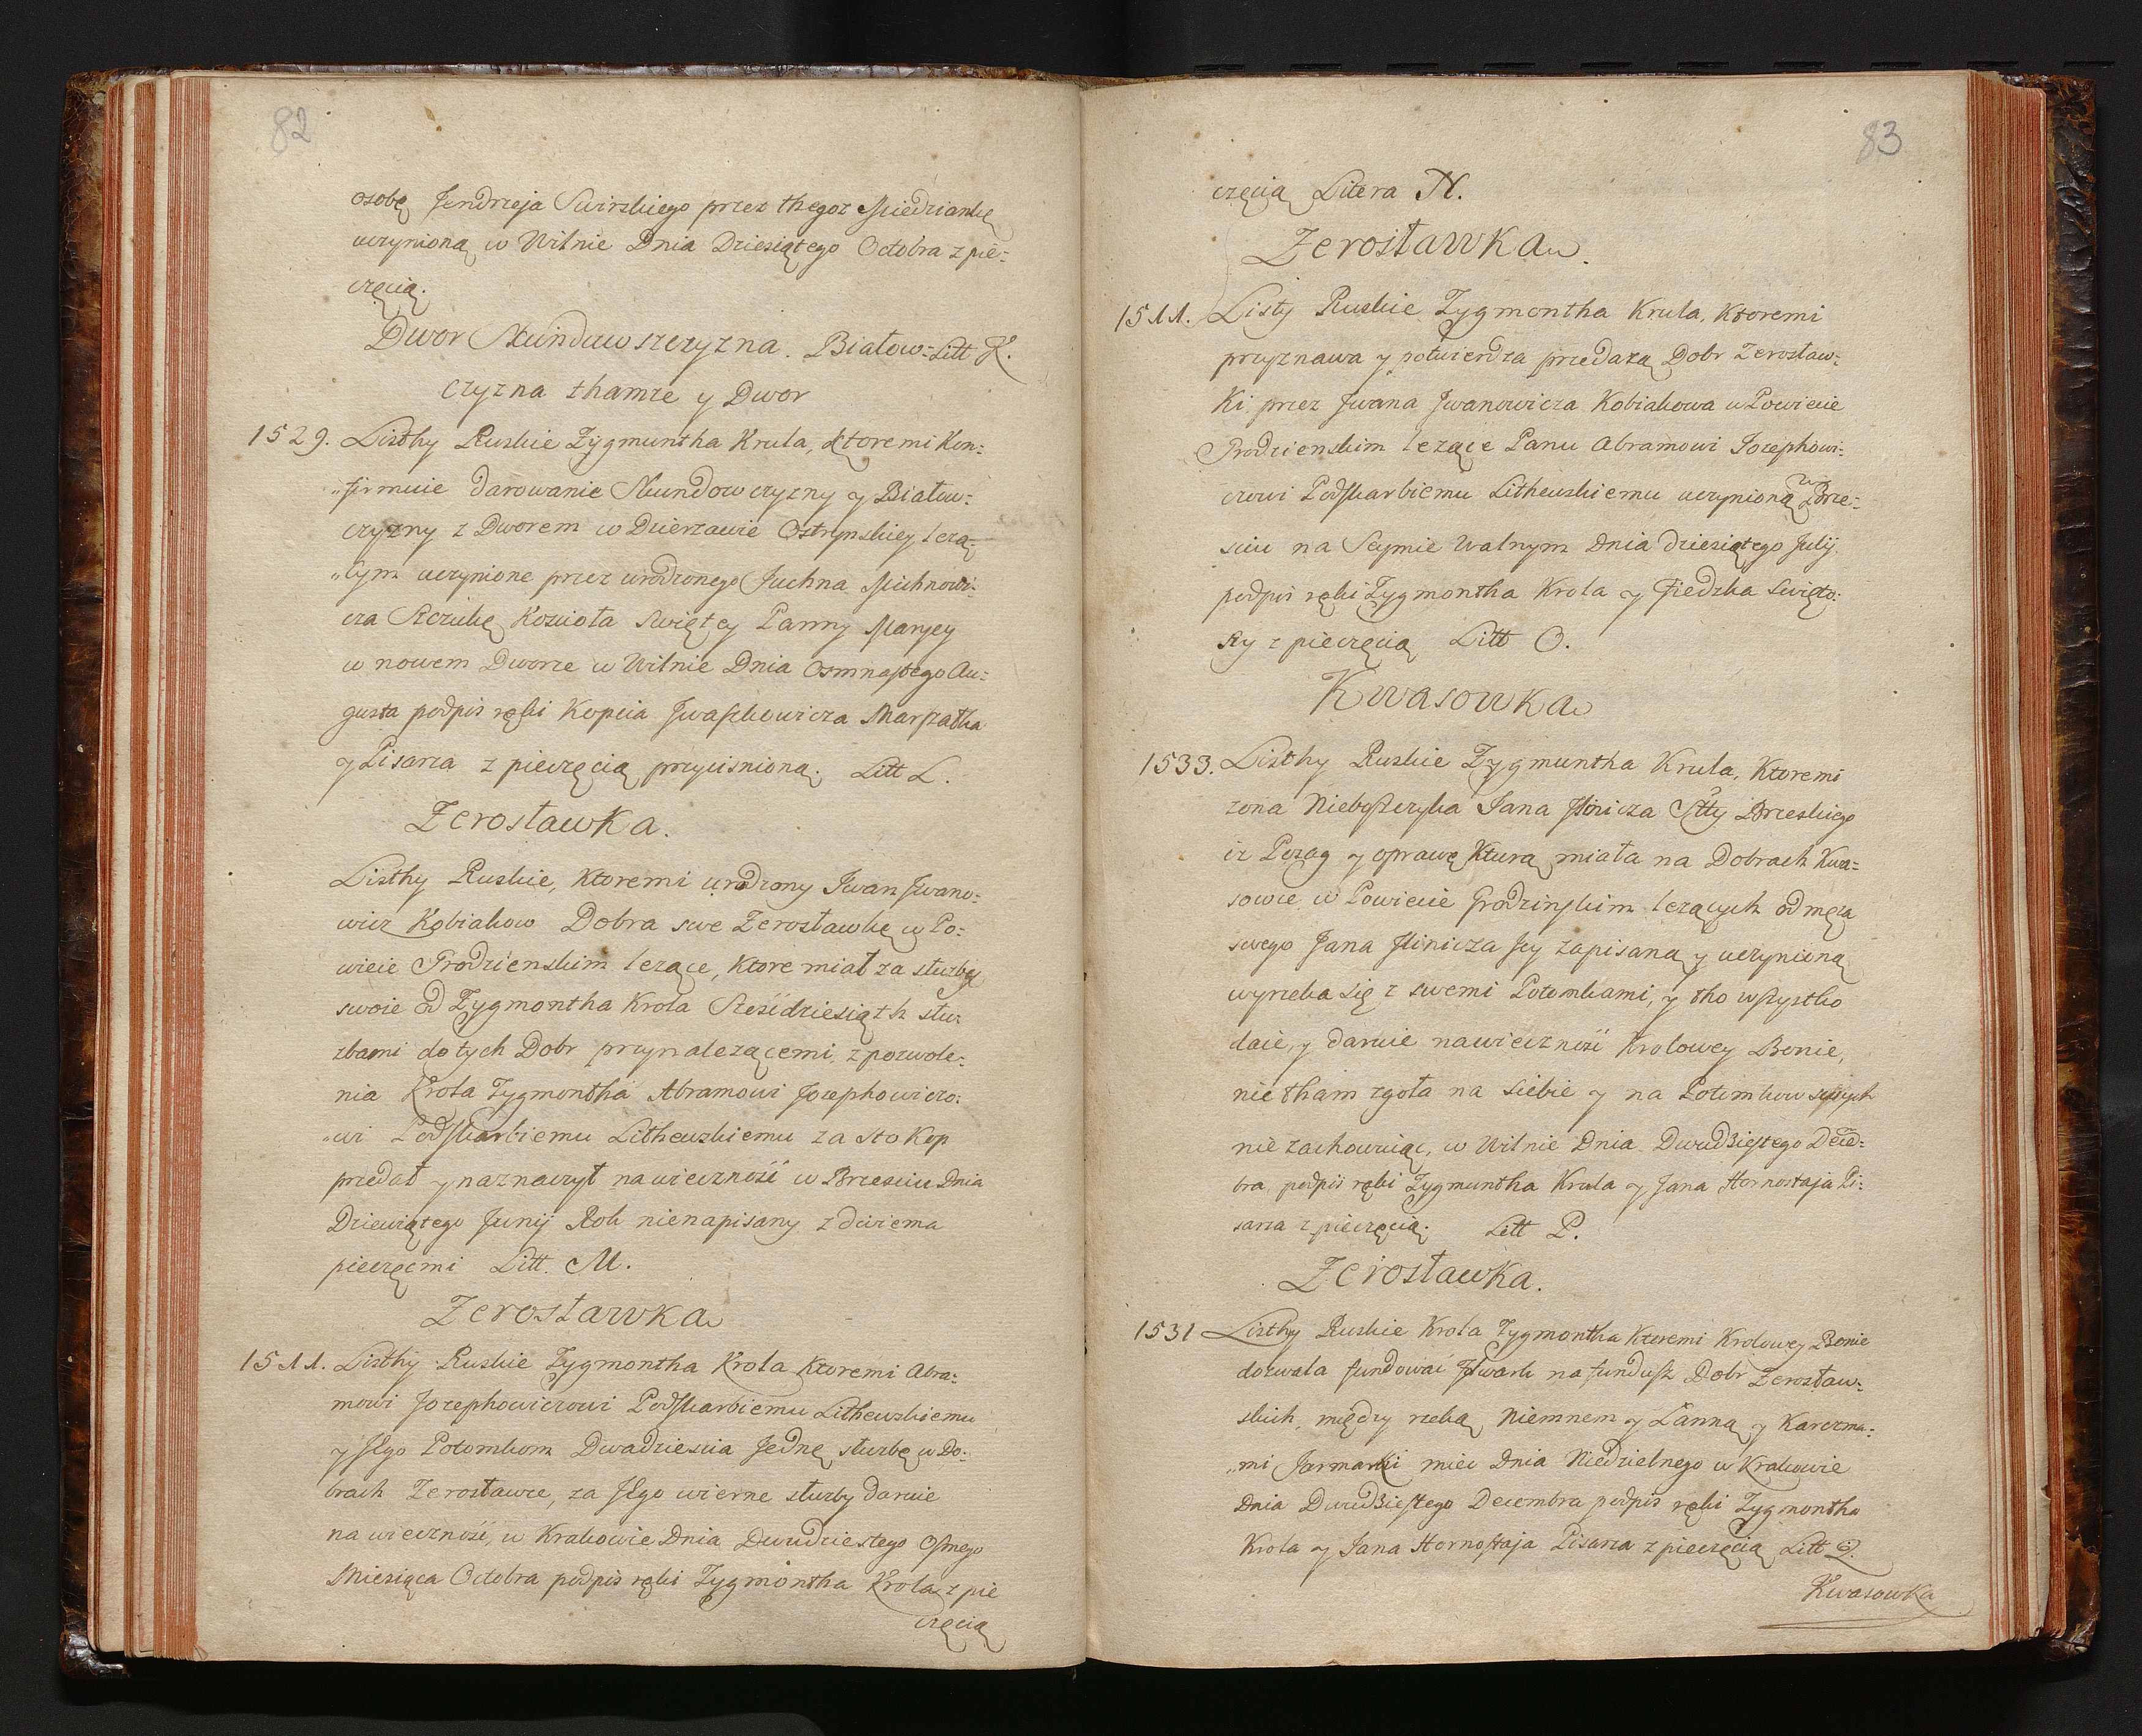 82
osobę Jendrzeja Swirskiego przez thegoz Miedziankę
uczynioną w Wilnie Dnia Dziesiątego Octobra z pie=
częcią.
Dwor Skundowszczyzna. Białow= Litt K.
czyzna thamze y Dwor
1529. Listhy Ruskie Zygmuntha Krula, ktoremi Kon=
„firmuie darowanie Skundowczyzny y Białow=
czyzny z Dworem w Dzierzawie Ostrynskiey lezą=
„cym uczynione przez urodzonego Juchna Michnowi=
cza Steczukę Koscioła Swiętey Panny Maryey
w nowem Dworze w Wilnie Dnia Osmnastego Au=
gusta podpis ręki Kopcia Jwaszkowicza Marszałka
y Pisarza z pieczęcią przycisnioną. Litt L.
Zerosławka.
Listhy Ruskie, Ktoremi urodzony Iwan Jwano=
wicz Kobiakow Dobra swe Zerosławkę w Po=
wiecie Grodzienskim lezące, Ktore miał za słuzby
swoie od Zygmontha Krola Sześćdziesiąth słu=
zbami do tych Dobr przynalezącemi, z pozwole=
nia Krola Zygmontha Abramowi Jozephowiczo=
„wi Podskarbiemu Lithewskiemu za sto Kop
przedał y naznaczył na wieczność w Brzesciu Dnia
Dziewiątego Junij Rok nienapisany z dwiema
pieczęćmi Litt. M.
Zerosławka
1511. Listhy Ruskie Zygmontha Krola Ktoremi Abra=
mowi Jozephowiczowi Podskarbiemu Lithewskiemu
y Jego Potomkom Dwadziescia Jednę słuzbę w Do=
brach Zerosławce, za Jego wierne słuzby daruie
na wieczność, w Krakowie Dnia Dwudziestego Osmego
Miesiąca Octobra podpis ręki Zygmontha Krola z pie
częcią
83
częcią Litera N.
Zerosławka.
1511. Listy Ruskie Zygmontha Krula, Ktoremi
przyznawa y potwierdza przedazą Dobr Zerosław=
ki przez Jwana Jwanowicza Kobiakowa w Powiecie
Grodzienskim lezące Panu Abramowi Jozephowi=
czowi Podskarbiemu Lithewskiemu uczynioną w Brze=
sciu na Seymie walnym Dnia dziesiątego Julij.
podpis ręki Zygmontha Krola y Fiedzka Swięto=
szy z pieczęcią Litt O.
Kwasowka
1533. Listhy Ruskie Zygmuntha Krula, Ktoremi
zona Nieboszczyka Jana Jlinicza Stty Brzeskiego
iz Posag y oprawę Kturą miała na Dobrach Kwa=
sowce w Powiecie Grodzinskim lezących od męza
swego Jana Jlinicza Jey zapisaną y uczynioną
wyrzeka się z swemi Potomkami, y tho wszystko
daie, y daruie na wieczność Krolowey Bonie,
nie tham zgoła na siebie y na Potomkow swych
nie zachowuiąc, w Wilnie Dnia Dwudziestego Decē=
bra podpis ręki Zygmuntha Krula y Jana Hornostaja Pi=
sarza z pieczęcią. Litt P.
Zerosławka.
1531 Listhy Ruskie Krola Zygmontha Ktoremi Krolowey Bonie
dozwala fundować Folwark na fundusz Dobr Zerosław=
skich, między rzeką Niemnem y Łanną y Karczma=
„mi Jarmarki miec Dnia Niedzielnego w Krakowie
Dnia Dwudziestego Decembra podpis ręki Zygmontha
Krola y Jana Hornostaja Pisarza z pieczęcią Litt Q.
Kwasowka